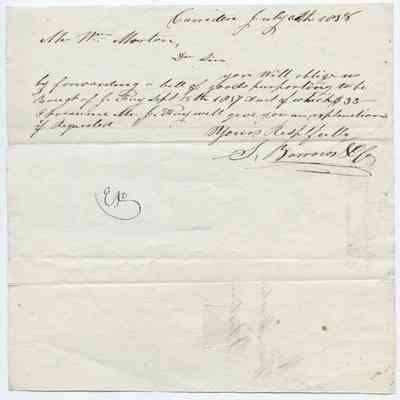 Camden July 1838
Mr. Wm. Morton,
Dr Sir
you Will oblige us
by forwarding a bill of goods purporting to be
Bougt of J. Fay Sept 15th 1837 Amt of which $33
& presume Mr. J. Fay will give you an explanation
if Requested
Yours Respfully
S. Barrows & Co